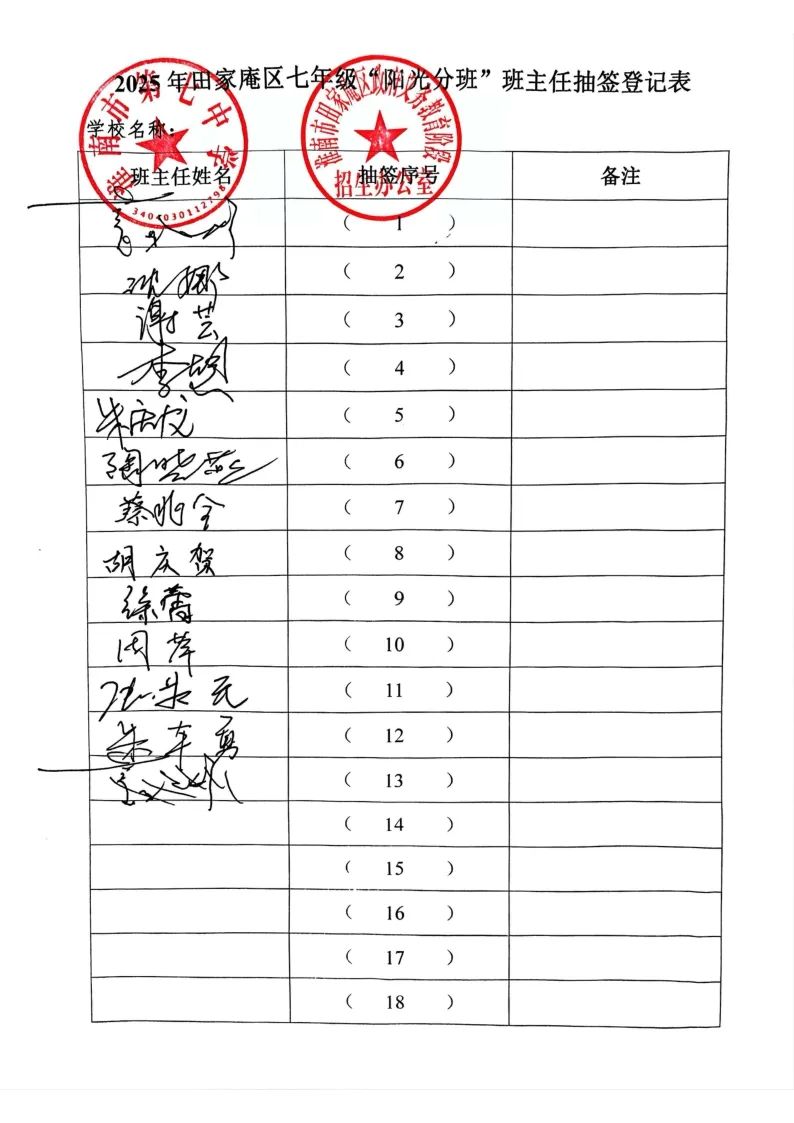 2025年田家庵区七年级“阳光分班”班主任抽签登记表
学校名称：
淮南市第七中学
3404030112798
淮南市田家庵区政府义务教育阶段
招生办公室
班主任姓名 抽签序号 备注
（ 1 ）
（ 2 ）
谢芸 （ 3 ）
（ 4 ）
朱庆文 （ 5 ）
陶晓燕 （ 6 ）
蔡明全 （ 7 ）
胡庆贺 （ 8 ）
徐蕾 （ 9 ）
周萍 （ 10 ）
（ 11 ）
朱军勇 （ 12 ）
（ 13 ）
（ 14 ）
（ 15 ）
（ 16 ）
（ 17 ）
（ 18 ）